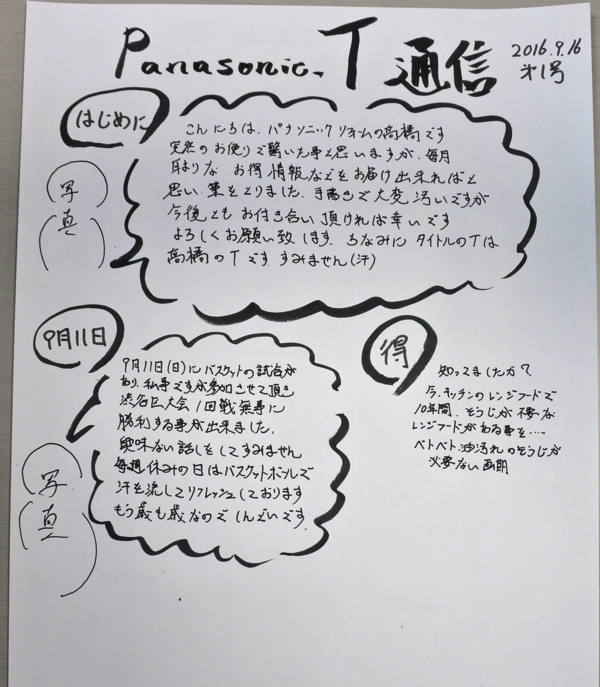 Panasonic. T 通信
2016.9.16
才1号
はじめに
こんにちは、パナソニックリフォームの高橋です
突然のお便りで驚いた事と思いますが、毎月
耳よりな お得情報などをお届け出来ればと
思い、筆をとりました、手書きで大変汚いですが
今後ともお付き合い頂ければ幸いです
よろしくお願い致します、ちなみにタイトルのTは
高橋のTです、すみません(汗)
写真
9月11日
9月11日(日)にバスケットの試合が
あり、私事ですが参加させて頂き
渋谷区大会1回戦無事に
勝利する事が出来ました、
興味ない話しをしてすみません
毎週休みの日はバスケットボールで
汗を流してリフレッシュしております
もう歳も歳なのでしんどいです
写真
得
知ってましたか?
今、キッチンのレンジフードで
10年間、そうじが不要な
レンジフードがある事を....
ベトベト油汚れのそうじが
必要ない画期